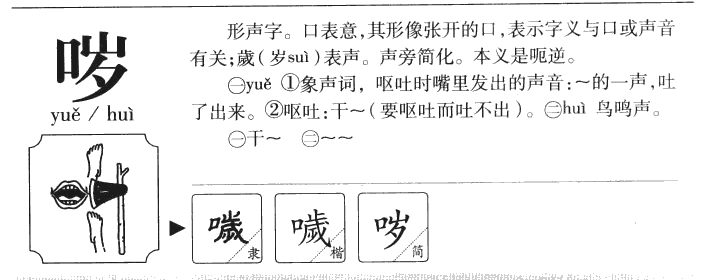 哕
yuě / huì
形声字。口表意,其形像张开的口,表示字义与口或声音
有关;歲(岁suì)表声。声旁简化。本义是呃逆。
㊀yuě ①象声词，呕吐时嘴里发出的声音:～的一声,吐
了出来。②呕吐:干～(要呕吐而吐不出)。㊁huì 鸟鸣声。
㊀干～ ㊁～～
噦 隶 噦 楷 哕 简